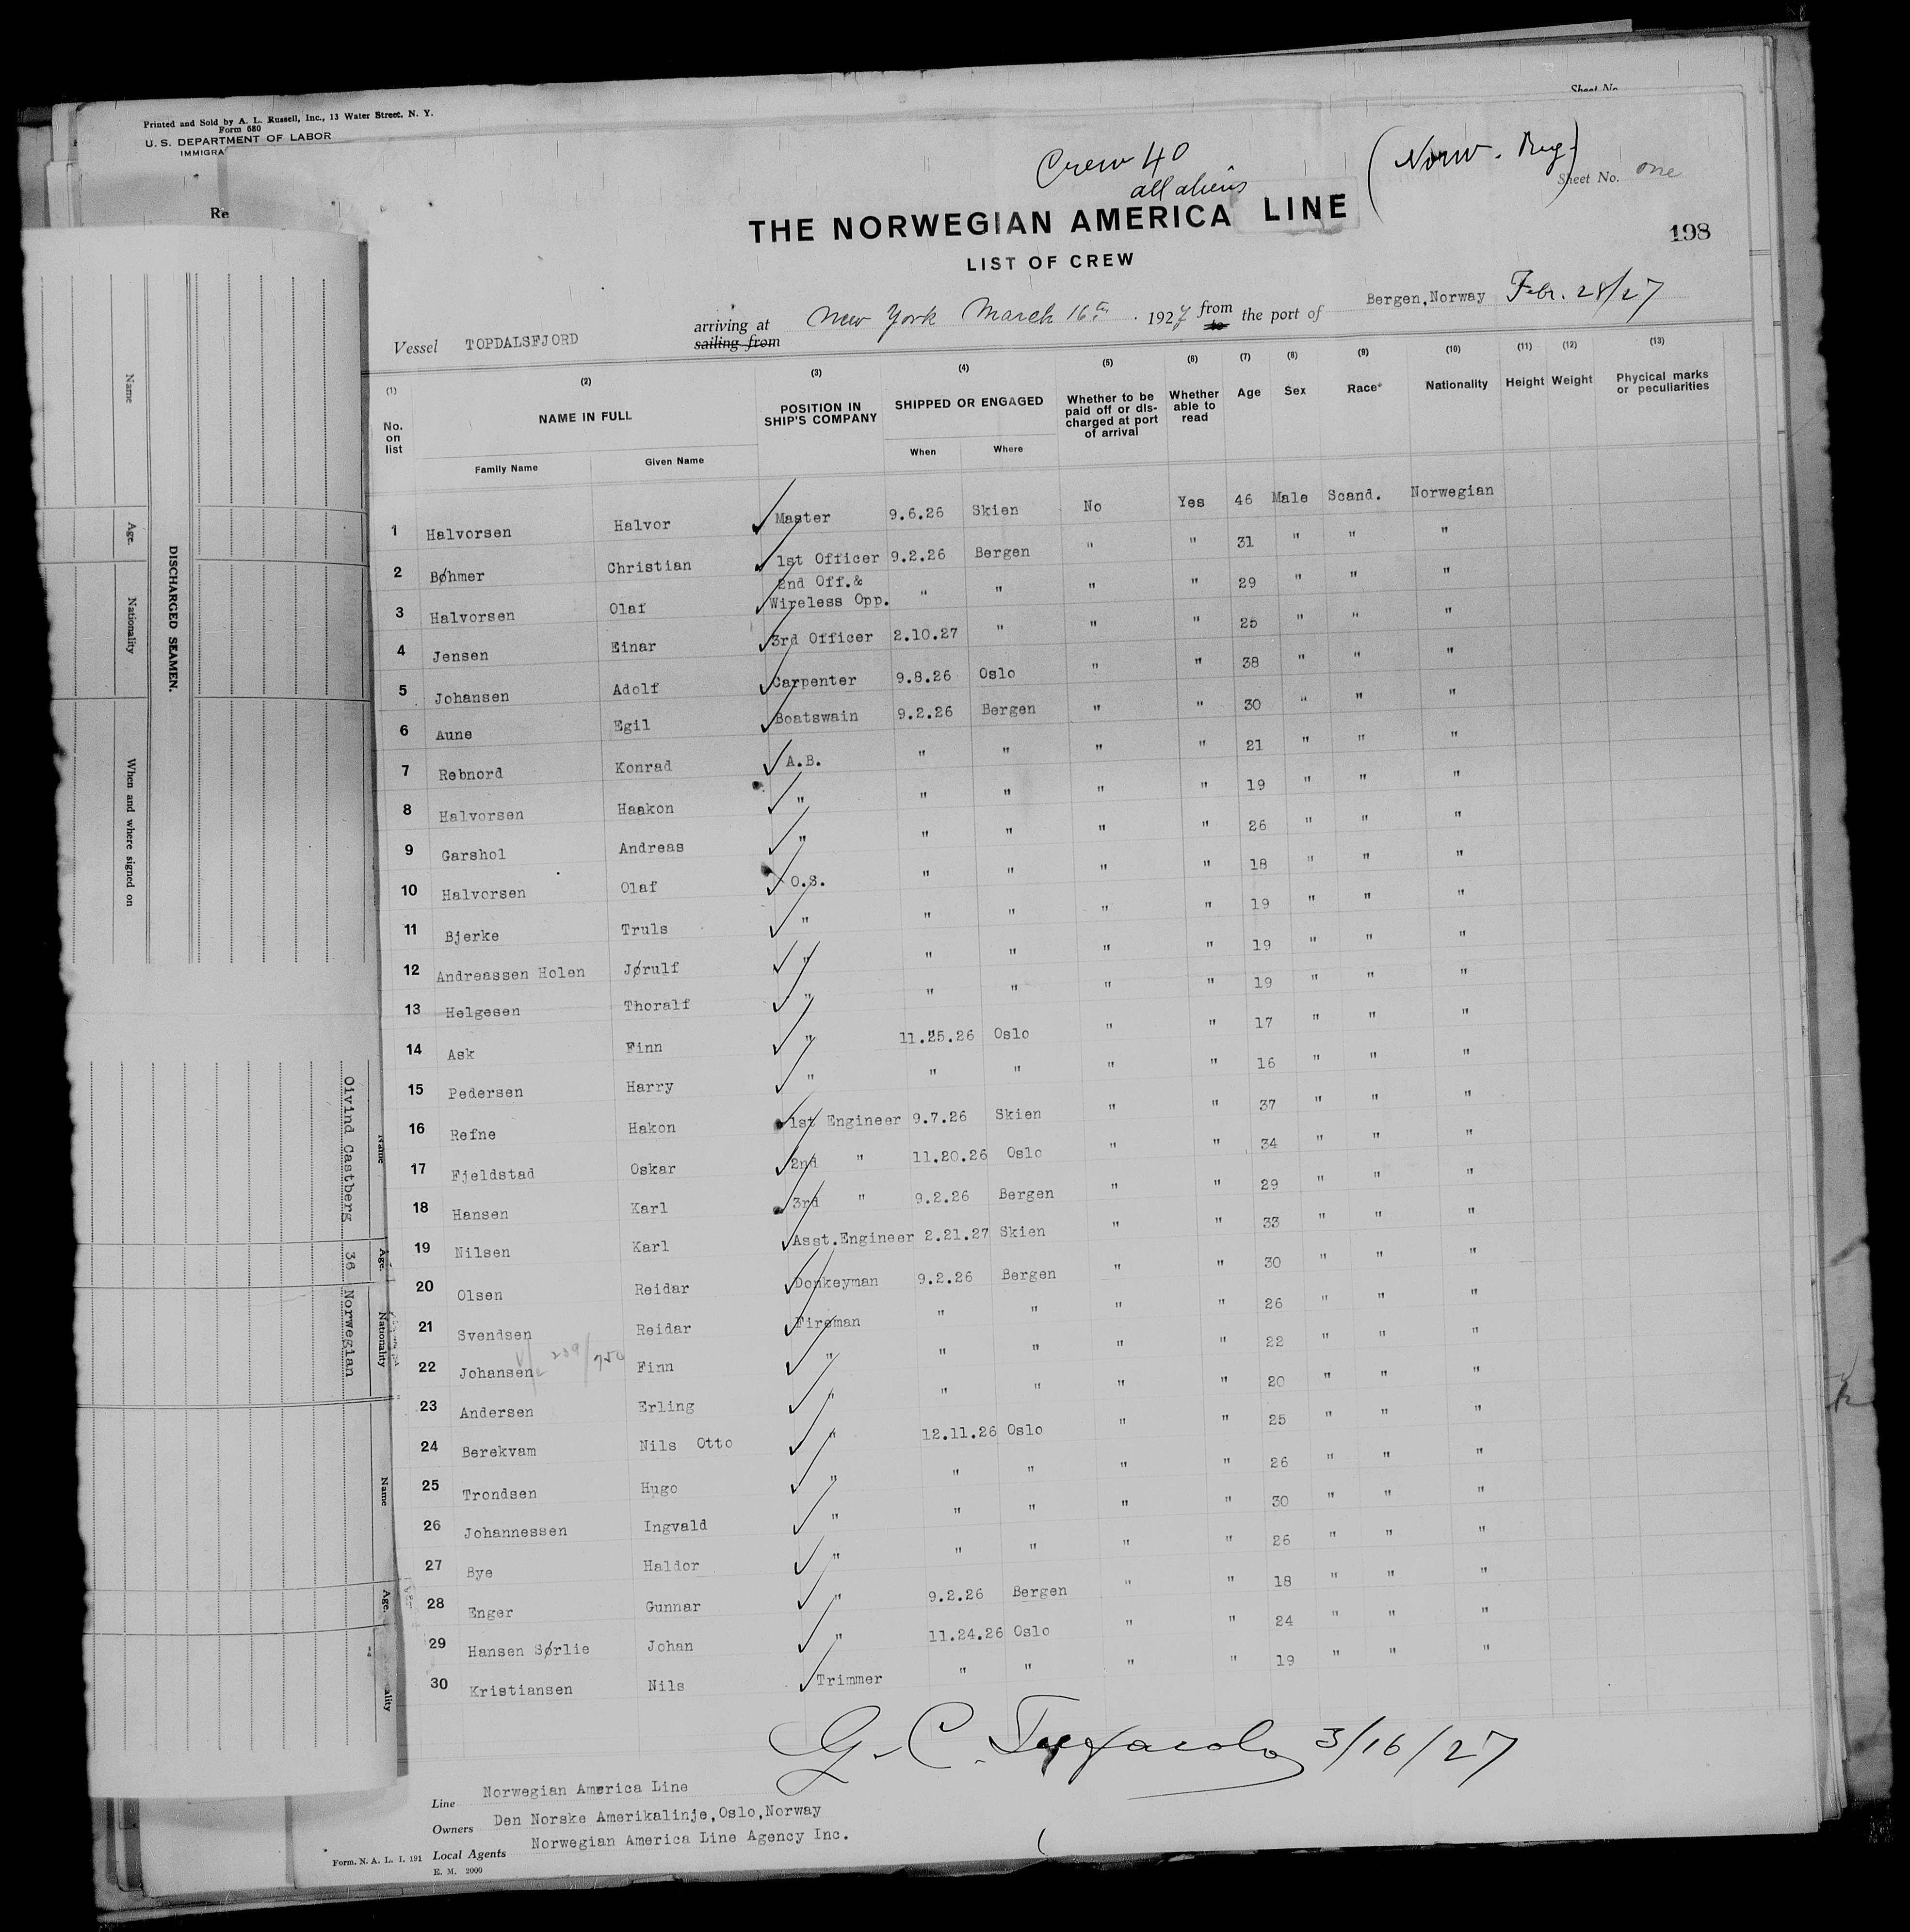 Sheet No.
Printed and Sold by A. L. Russell, Inc., 13 Water Street, N. Y.
Form 680
U. S. DEPARTMENT OF LABOR
IMMIGRA
Re
Crew 40
all aliens
(Norw. Reg.)
Sheet No. one
THE NORWEGIAN AMERICA LINE
198
LIST OF CREW
Vessel TOPDALSFJORD arriving at sailing from New York March 16th, 1927 from to the port of Bergen, Norway Febr. 28/27
(1) (2) (3) (4) (5) (6) (7) (8) (9) (10) (11) (12) (13)
No. on list NAME IN FULL POSITION IN SHIP'S COMPANY SHIPPED OR ENGAGED Whether to be paid off or discharged at port of arrival Whether able to read Age Sex Race* Nationality Height Weight Phycical marks or peculiarities
Family Name Given Name When Where
1 Halvorsen Halvor Master 9.6.26 Skien No Yes 46 Male Scand. Norwegian
2 Bøhmer Christian 1st Officer 9.2.26 Bergen " " 31 " " "
3 Halvorsen Olaf 2nd Off.& Wireless Opp. " " " " 29 " " "
4 Jensen Einar 3rd Officer 2.10.27 " " " 25 " " "
5 Johansen Adolf Carpenter 9.8.26 Oslo " " 38 " " "
6 Aune Egil Boatswain 9.2.26 Bergen " " 30 " " "
7 Rebnord Konrad A.B. " " " " 21 " " "
8 Halvorsen Haakon " " " " " 19 " " "
9 Garshol Andreas " " " " " 26 " " "
10 Halvorsen Olaf O.S. " " " " 18 " " "
11 Bjerke Truls " " " " " 19 " " "
12 Andreassen Holen Jørulf " " " " " 19 " " "
13 Helgesen Thoralf " " " " " 19 " " "
14 Ask Finn " 11.25.26 Oslo " " 17 " " "
15 Pedersen Harry " " " " " 16 " " "
16 Refne Hakon 1st Engineer 9.7.26 Skien " " 37 " " "
17 Fjeldstad Oskar 2nd " 11.20.26 Oslo " " 34 " " "
18 Hansen Karl 3rd " 9.2.26 Bergen " " 29 " " "
19 Nilsen Karl Asst.Engineer 2.21.27 Skien " " 33 " " "
20 Olsen Reidar Donkeyman 9.2.26 Bergen " " 30 " " "
21 Svendsen Reidar Fireman " " " " 26 " " "
22 Johansen Finn " " " " " 22 " " "
23 Andersen Erling " " " " " 20 " " "
24 Berekvam Nils Otto " 12.11.26 Oslo " " 25 " " "
25 Trondsen Hugo " " " " " 26 " " "
26 Johannessen Ingvald " " " " " 30 " " "
27 Bye Haldor " " " " " 26 " " "
28 Enger Gunnar " 9.2.26 Bergen " " 18 " " "
29 Hansen Sørlie Johan " 11.24.26 Oslo " " 24 " " "
30 Kristiansen Nils Trimmer " " " " 19 " " "
G. C. 3/16/27
Line Norwegian America Line
Owners Den Norske Amerikalinje, Oslo, Norway
Local Agents Norwegian America Line Agency Inc.
Form. N. A. L. I. 191
E. M. 2000
DISCHARGED SEAMEN.
Name Age. Nationality When and where signed on
Name Age. Nationality
Oivind Castberg 36 Norwegian
Name Age. ality